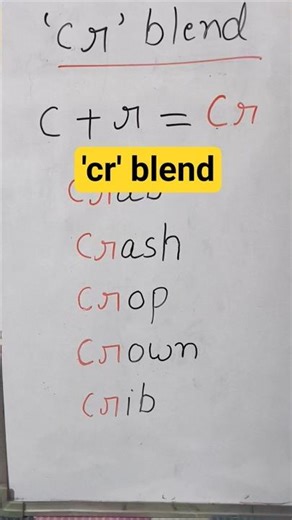 'cr' blend
c + r = Cr
'cr' blend
crash
crop
crown
crib